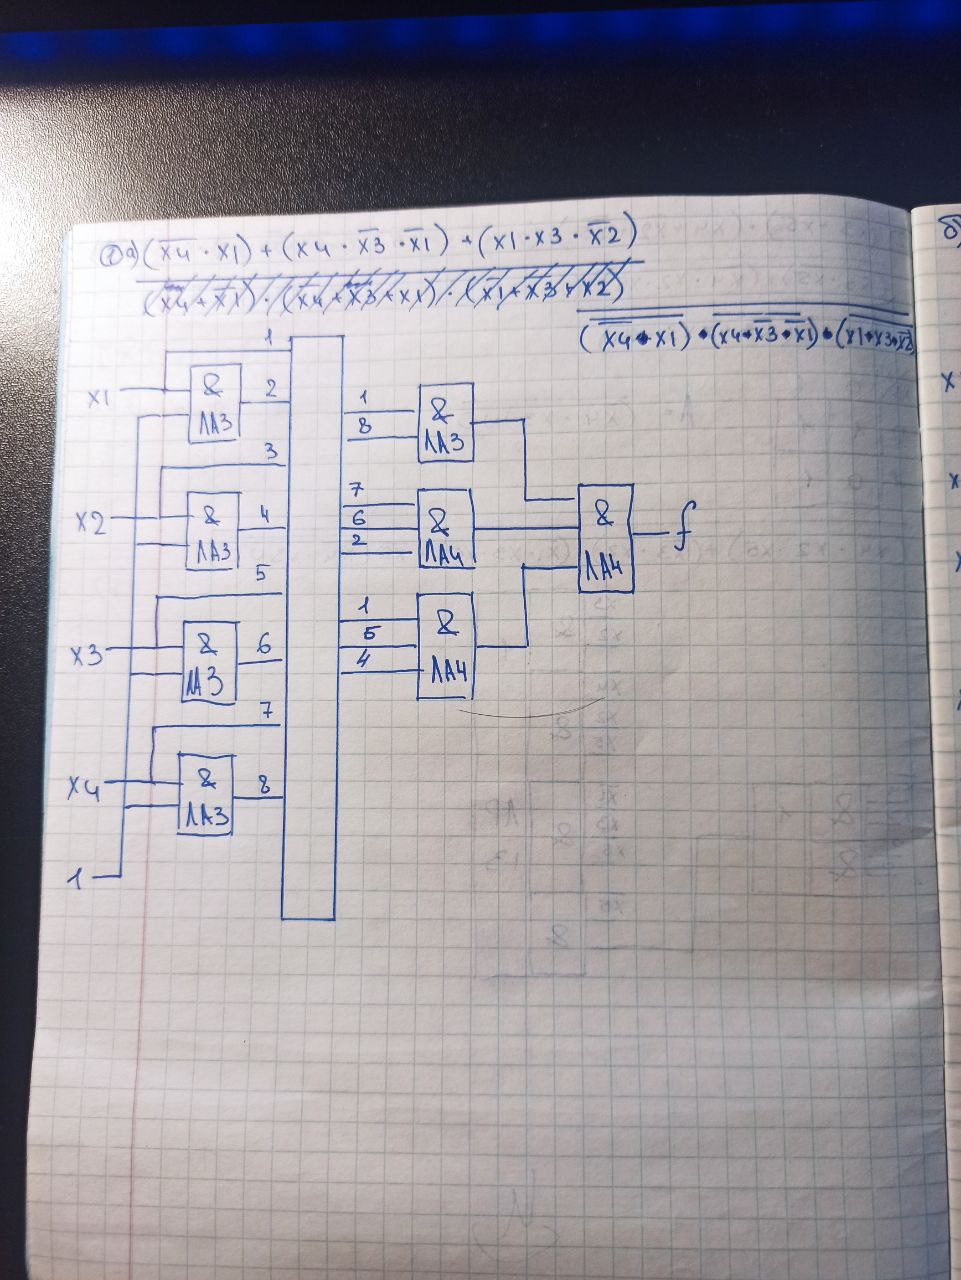 ① а) (x̅4̅ · x1) + (x4 · x̅3̅ · x̅1̅) + (x1 · x3 · x̅2̅)
(x̅4̅ · x1) · (x4 · x̅3̅ · x̅1̅) · (x1 · x3 · x̅2̅)
1
x1
&
ЛА3
2
3
x2
&
ЛА3
4
5
x3
&
ЛА3
6
7
x4
&
ЛА3
8
1
1
8
&
ЛА3
7
6
2
&
ЛА4
1
5
4
&
ЛА4
&
ЛА4
f
б)